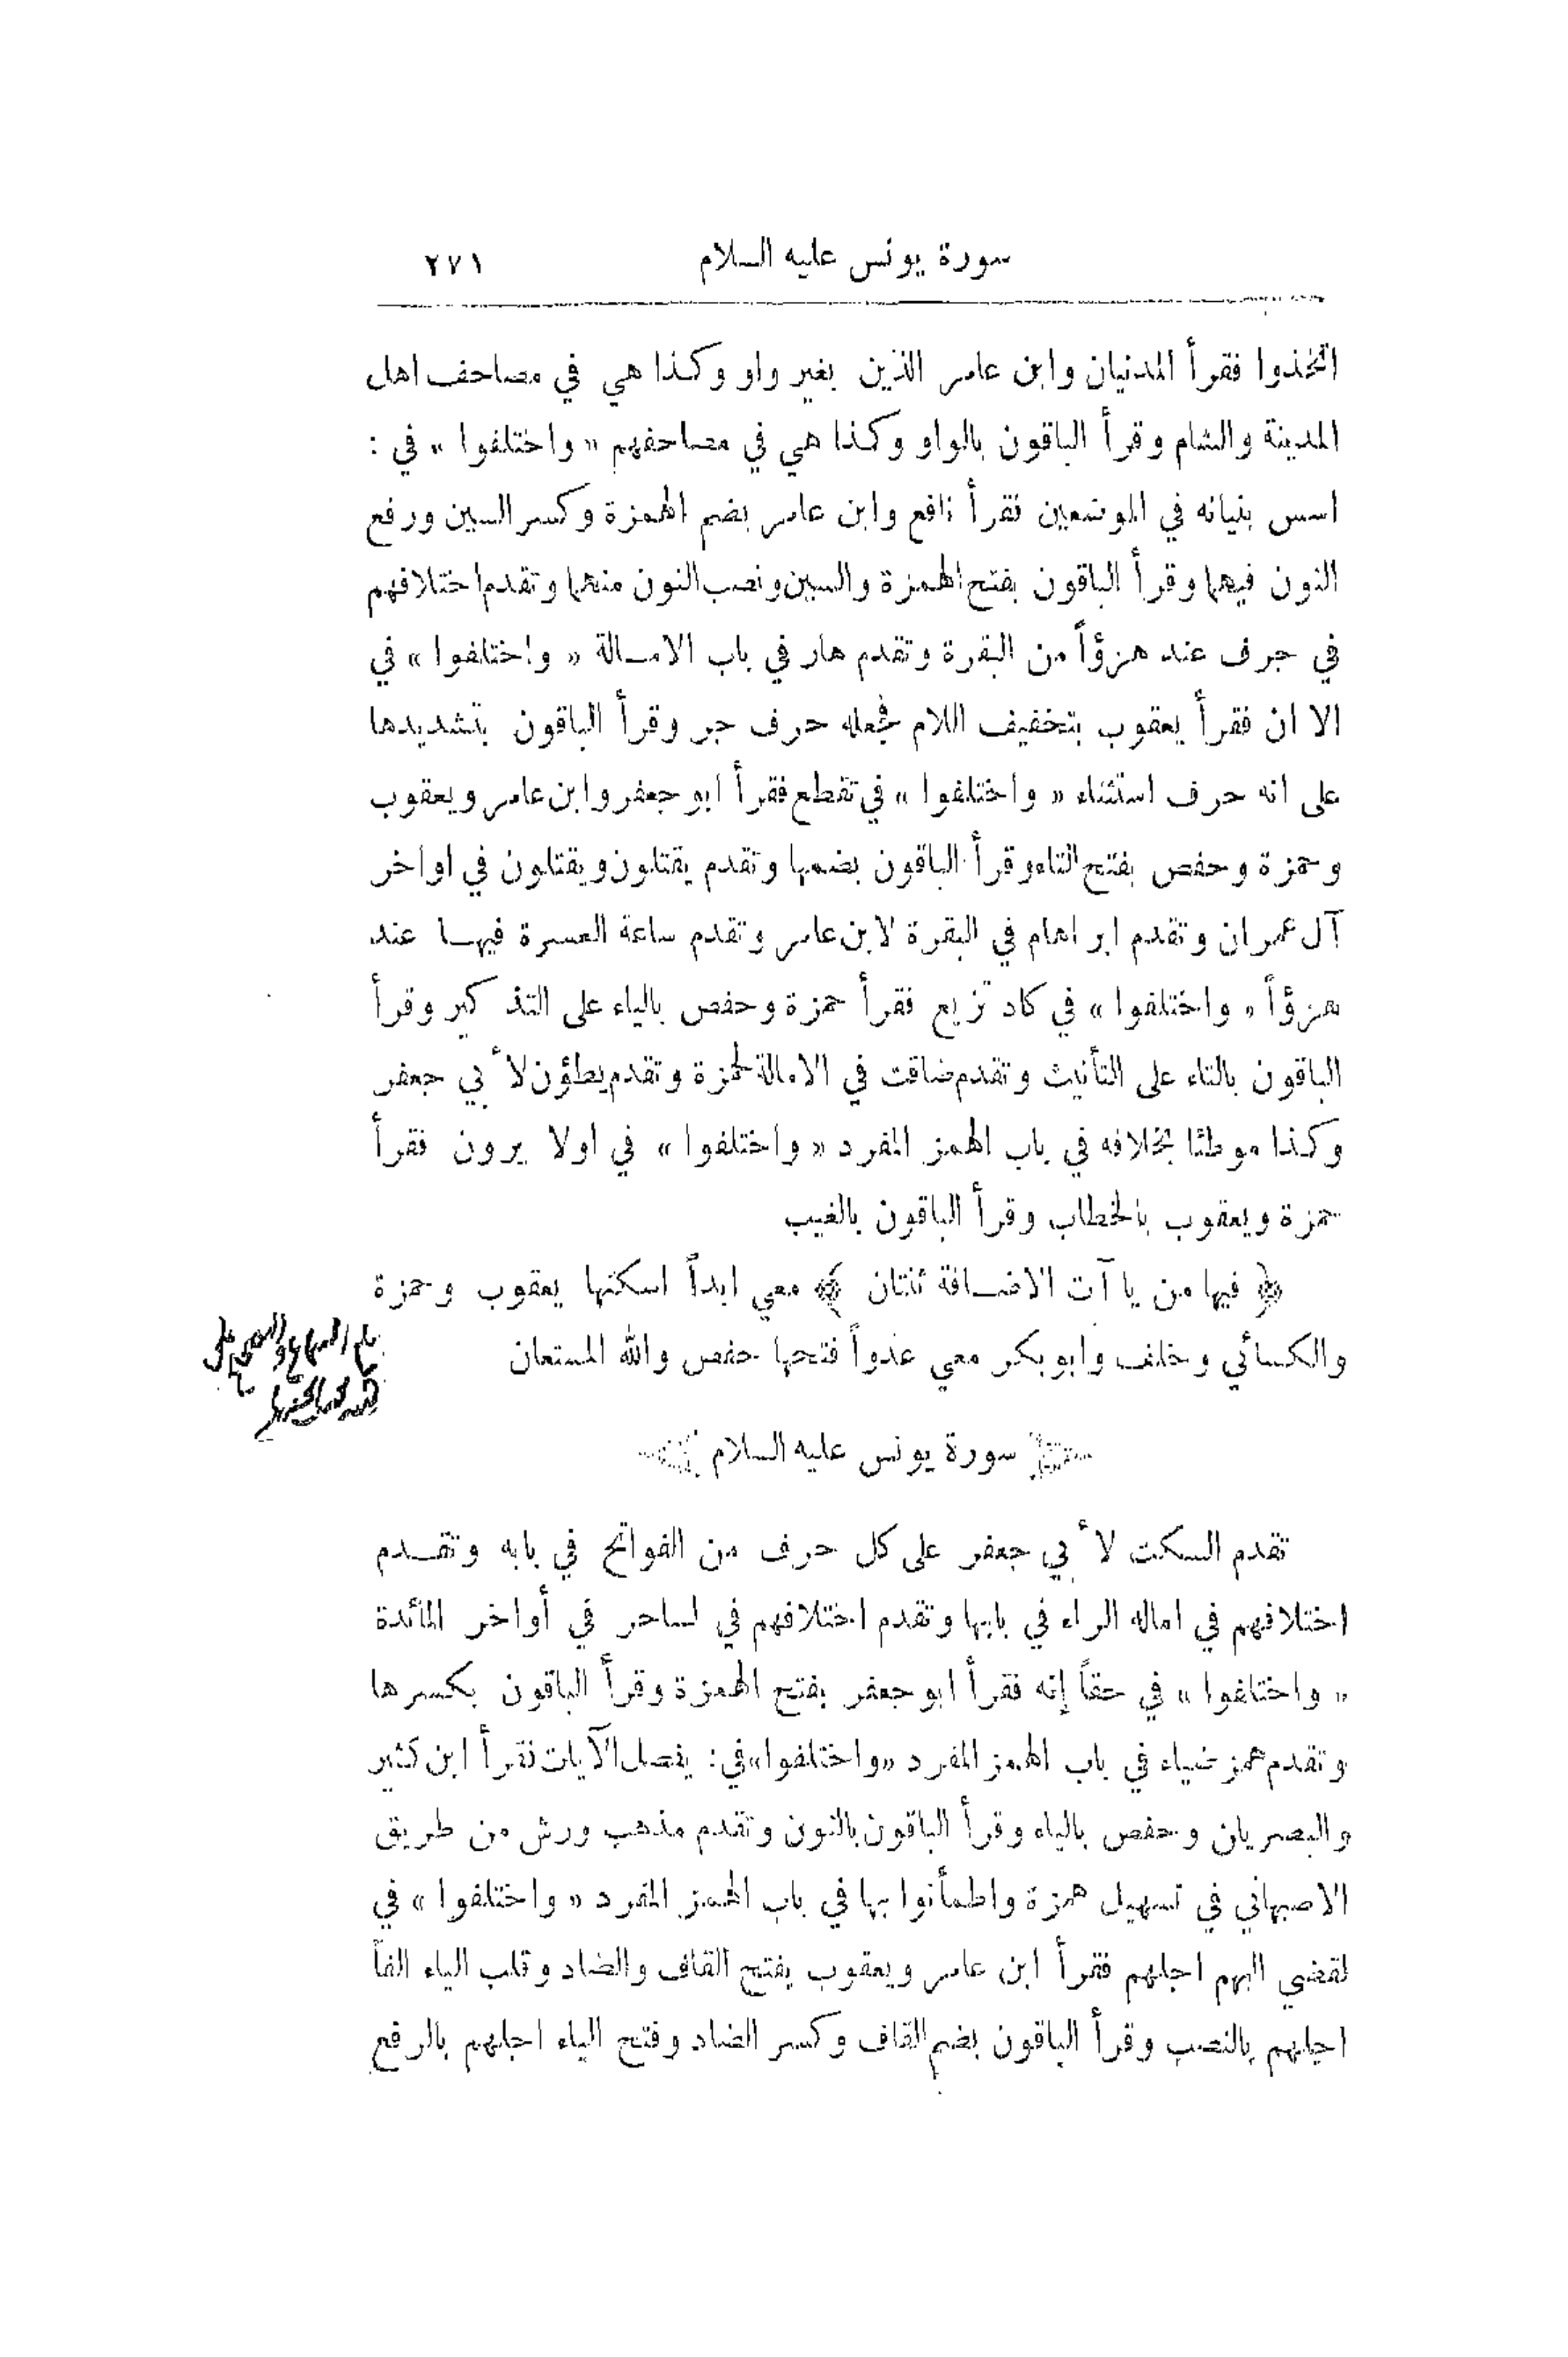 سورة يونس عليه السلام ٢٧١
اتخذوا فقرأ المدنيان وابن عامر الذين بغير واو وكذا هي في مصاحف اهل
المدينة والشام وقرأ الباقون بالواو وكذا هي في مصاحفهم « واختلفوا » في :
اسس بنيانه في الموضعين فقرأ نافع وابن عامر بضم الهمزة وكسر السين ورفع
النون فيهما وقرأ الباقون بفتح الهمزة والسين ونصب النون منهما وتقدم اختلافهم
في جرف عند هزؤاً من البقرة وتقدم هار في باب الامالة « واختلفوا » في
الا ان فقرأ يعقوب بتخفيف اللام فجعله حرف جر وقرأ الباقون بتشديدها
على انه حرف استثناء « واختلفوا » في تقطع فقرأ ابو جعفر وابن عامر ويعقوب
وحمزة وحفص بفتح التاء وقرأ الباقون بضمها وتقدم يقتلون ويقتلون في اواخر
آل عمران وتقدم ابراهام في البقرة لابن عامر وتقدم ساعة العسرة فيها عند
هزؤاً « واختلفوا » في كاد تزيع فقرأ حمزة وحفص بالياء على التذكير وقرأ
الباقون بالتاء على التأنيث وتقدم ضاقت في الامالة لحمزة وتقدم يطؤن لأبي جعفر
وكذا موطئا بخلافه في باب الهمز المفرد « واختلفوا » في اولا يرون فقرأ
حمزة ويعقوب بالخطاب وقرأ الباقون بالغيب
﴿ فيها من يا آت الاضافة ثنتان ﴾ معي ابداً اسكنها يعقوب وحمزة
والكسائي وخلف وابو بكر معي عدواً فتحها حفص والله المستعان
سورة يونس عليه السلام
تقدم السكت لأبي جعفر على كل حرف من الفواتح في بابه وتقدم
اختلافهم في اماله الراء في بابها وتقدم اختلافهم في لساحر في أواخر المائدة
« واختلفوا » في حقاً إنه فقرأ ابو جعفر بفتح الهمزة وقرأ الباقون بكسرها
وتقدم همز ضياء في باب الهمز المفرد «واختلفوا» في: يفصل الآيات فقرأ ابن كثير
والبصريان وحفص بالياء وقرأ الباقون بالنون وتقدم مذهب ورش من طريق
الاصبهاني في تسهيل همزة واطمأنوا بها في باب الهمز المفرد « واختلفوا » في
لقضي اليهم اجلهم فقرأ ابن عامر ويعقوب بفتح القاف والضاد وقلب الياء الفاً
اجلهم بالنصب وقرأ الباقون بضم القاف وكسر الضاد وفتح الياء اجلهم بالرفع